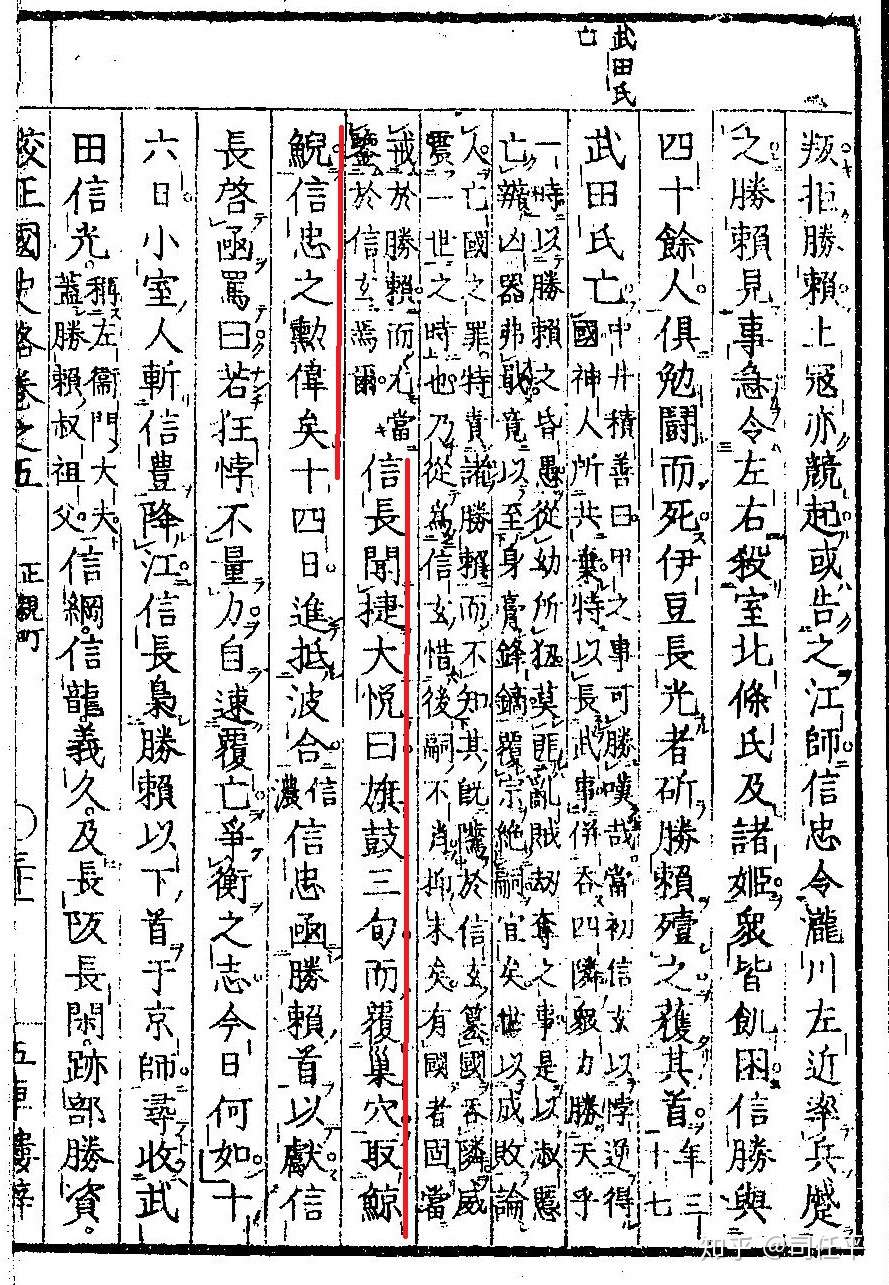 武田氏
亡
叛拒勝賴上冦亦競起或告之江師信忠令瀧川左近率兵蹙
之勝賴見事急令左右殺室北條氏及諸姬衆皆飢困信勝與
四十餘人俱勉鬪而死伊豆長光者斫勝賴殪之獲其首年三十七
武田氏亡中井積善曰甲之事可勝嘆哉當初信玄以悖逆得
國神人所共棄特以長武事併吞四隣衆力勝天乎
一時以勝賴之昏愚從幼所狃莫匪亂賊刼奪之事是以淑慝
亡辨凶器弗戢竟以至身膏鋒鏑覆宗絶嗣宜矣世以成敗論
人亡國之罪特責諸勝賴而不知其旣驕於信玄簒國吞隣威
震一世之時也乃從爲信玄惜後嗣不肖抑末矣有國者固當
戒於勝賴而尤當
鑒於信玄焉爾
信長聞捷大悦曰旗鼓三旬而覆巢穴取鯨
鯢信忠之勲偉矣十四日進抵波合信濃信忠凾勝賴首以獻信
長啓凾罵曰若狂悖不量力自速覆亡爭衡之志今日何如十
六日小室人斬信豊降江信長梟勝賴以下首于京師尋收武
田信光。稱左衞門大夫。蓋勝賴叔祖父。信綱信龍義久及長阪長閑。跡部勝資。
校正國史略卷之五 正親町 五車樓梓
知乎 @司任平